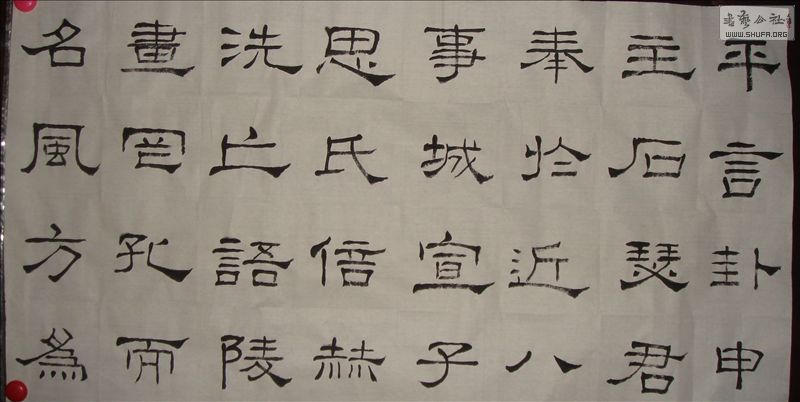 平言卦申
主石瑟君
奉於近八
事城宣子
思氏倍赫
洗亡語陵
畫罔孔而
名風方為
書藝公社
WWW.SHUFA.ORG